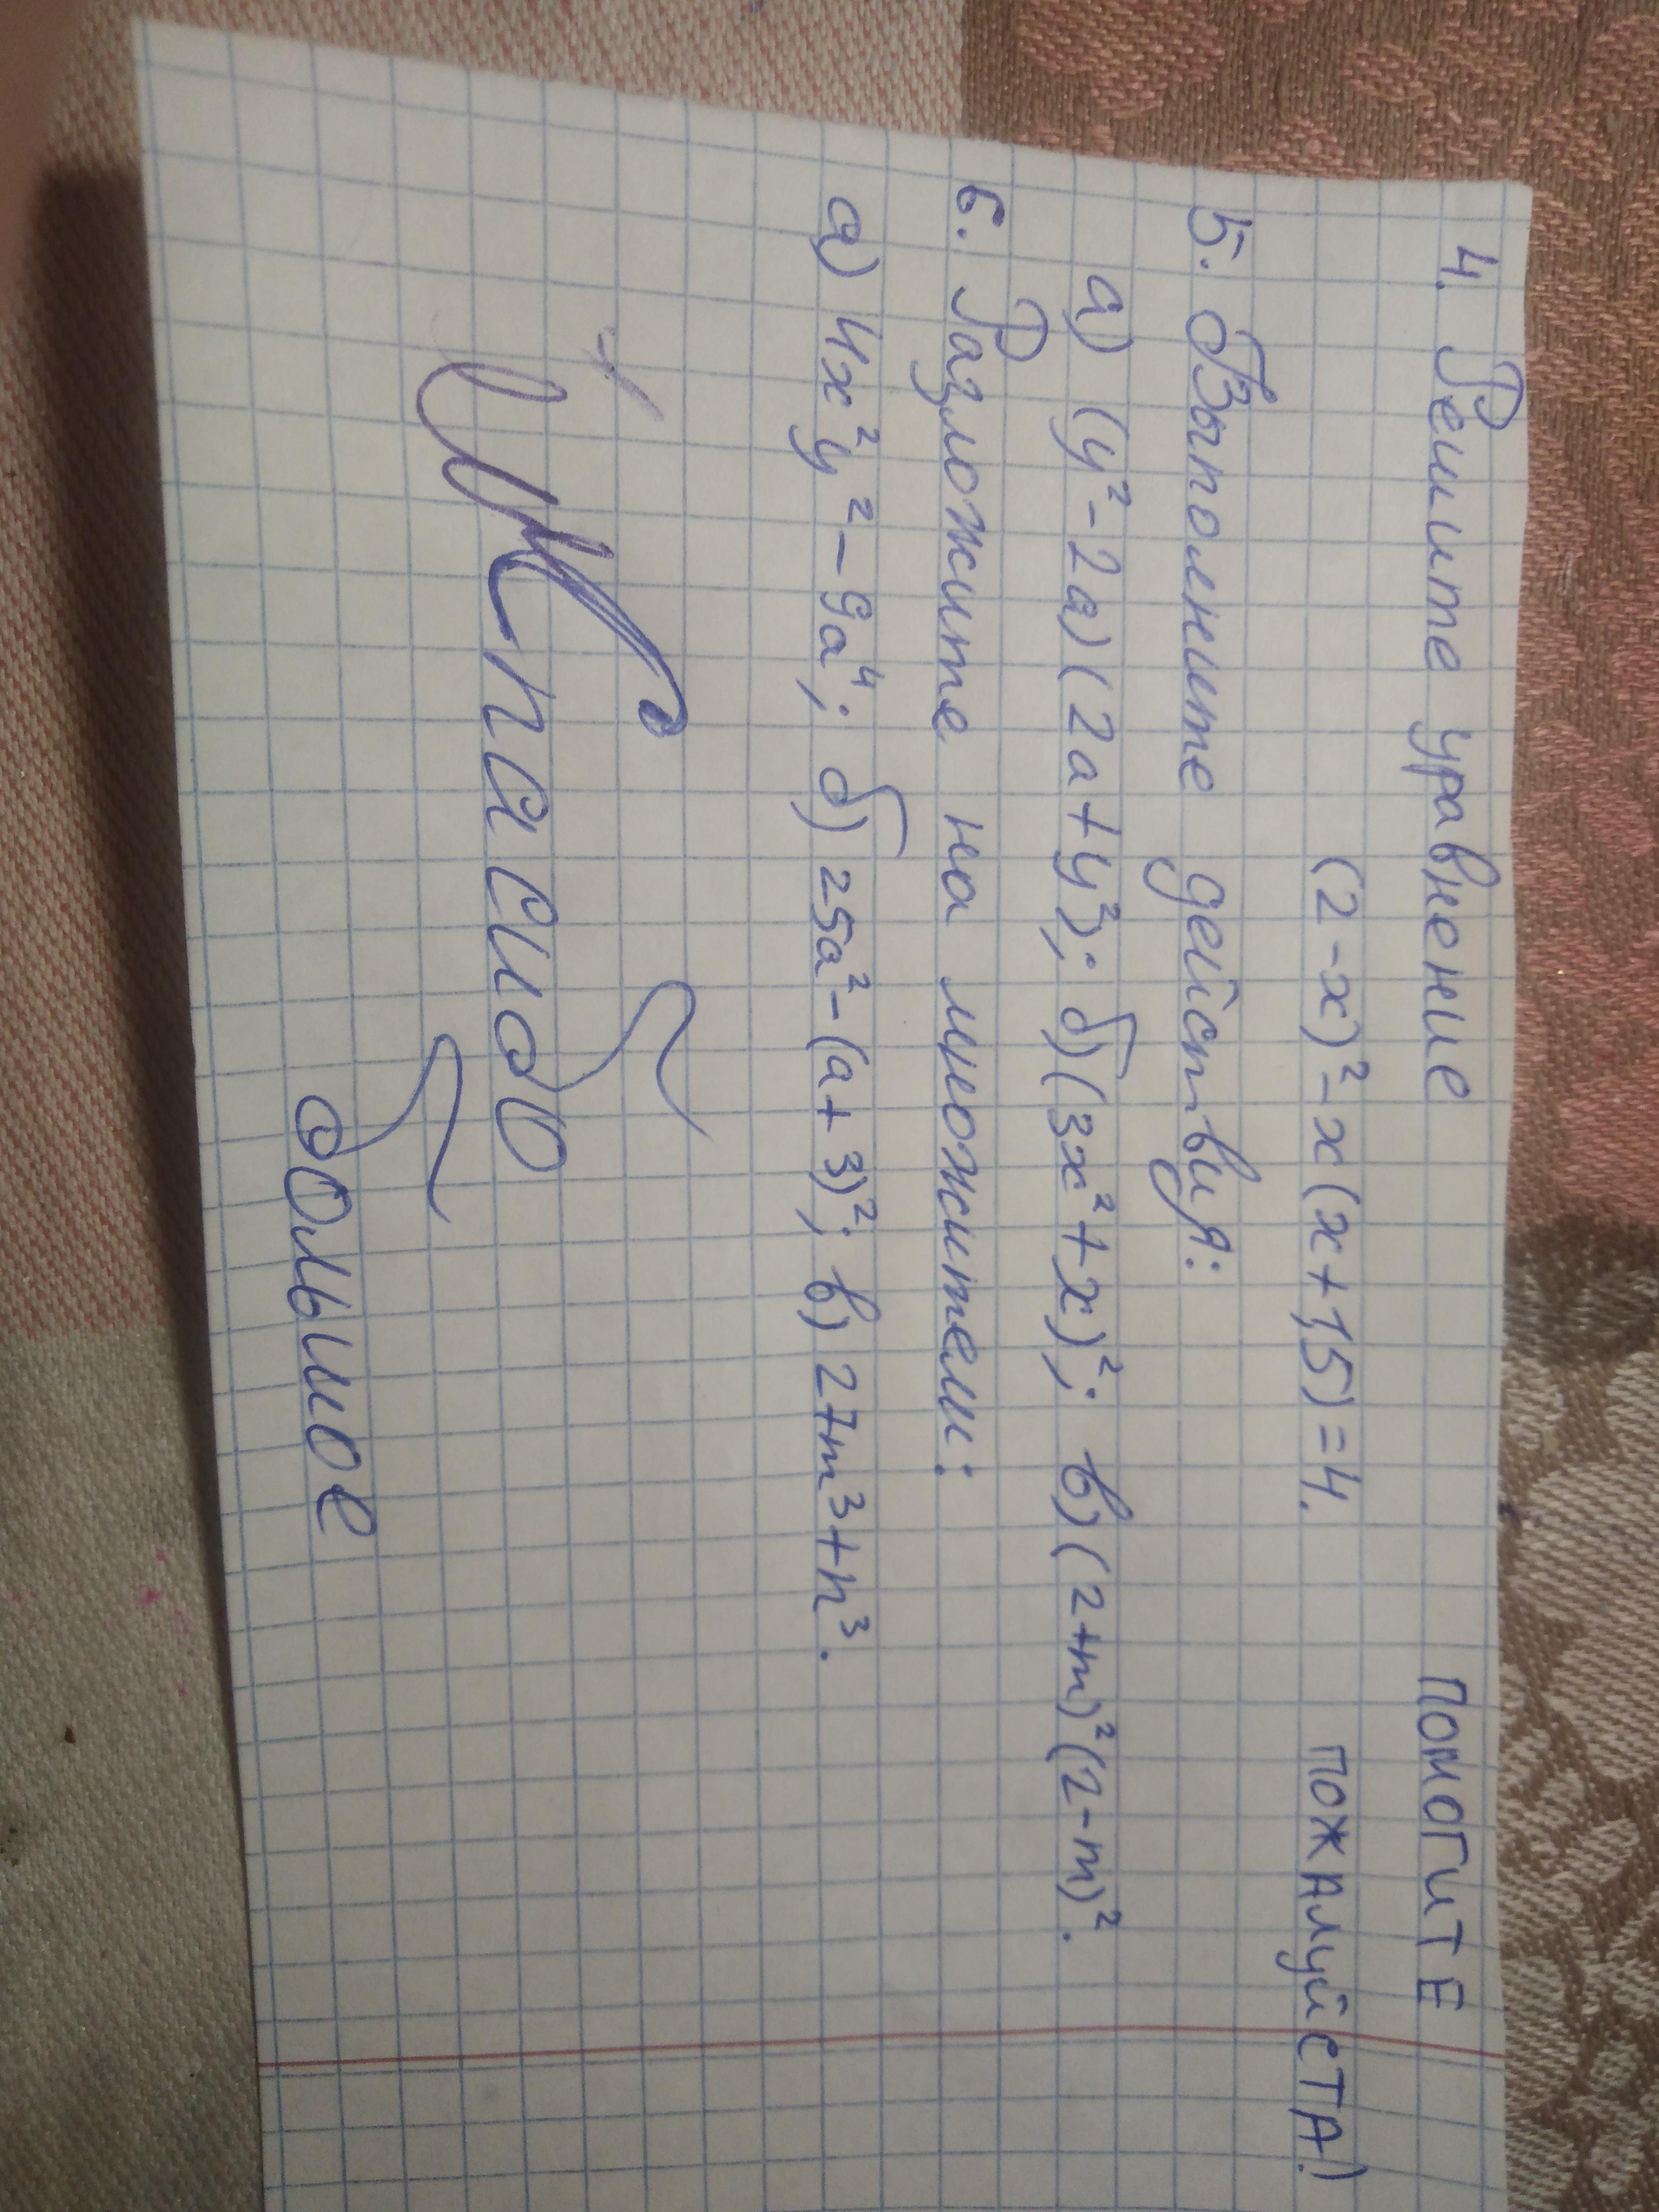 4. Решите уравнение ПОМОГИТЕ
(2-x)²-x(x+1,5)=4. ПОЖАЛУЙСТА!)
5. Выполните действия:
а) (y²-2a)(2a+y²); б) (3x²+x)²; в) (2+m)²(2-m)².
6. Разложите на множители:
а) 4x²y²-9a⁴; б) 25a²-(a+3)²; в) 27m³+n³.
Спасибо
большое